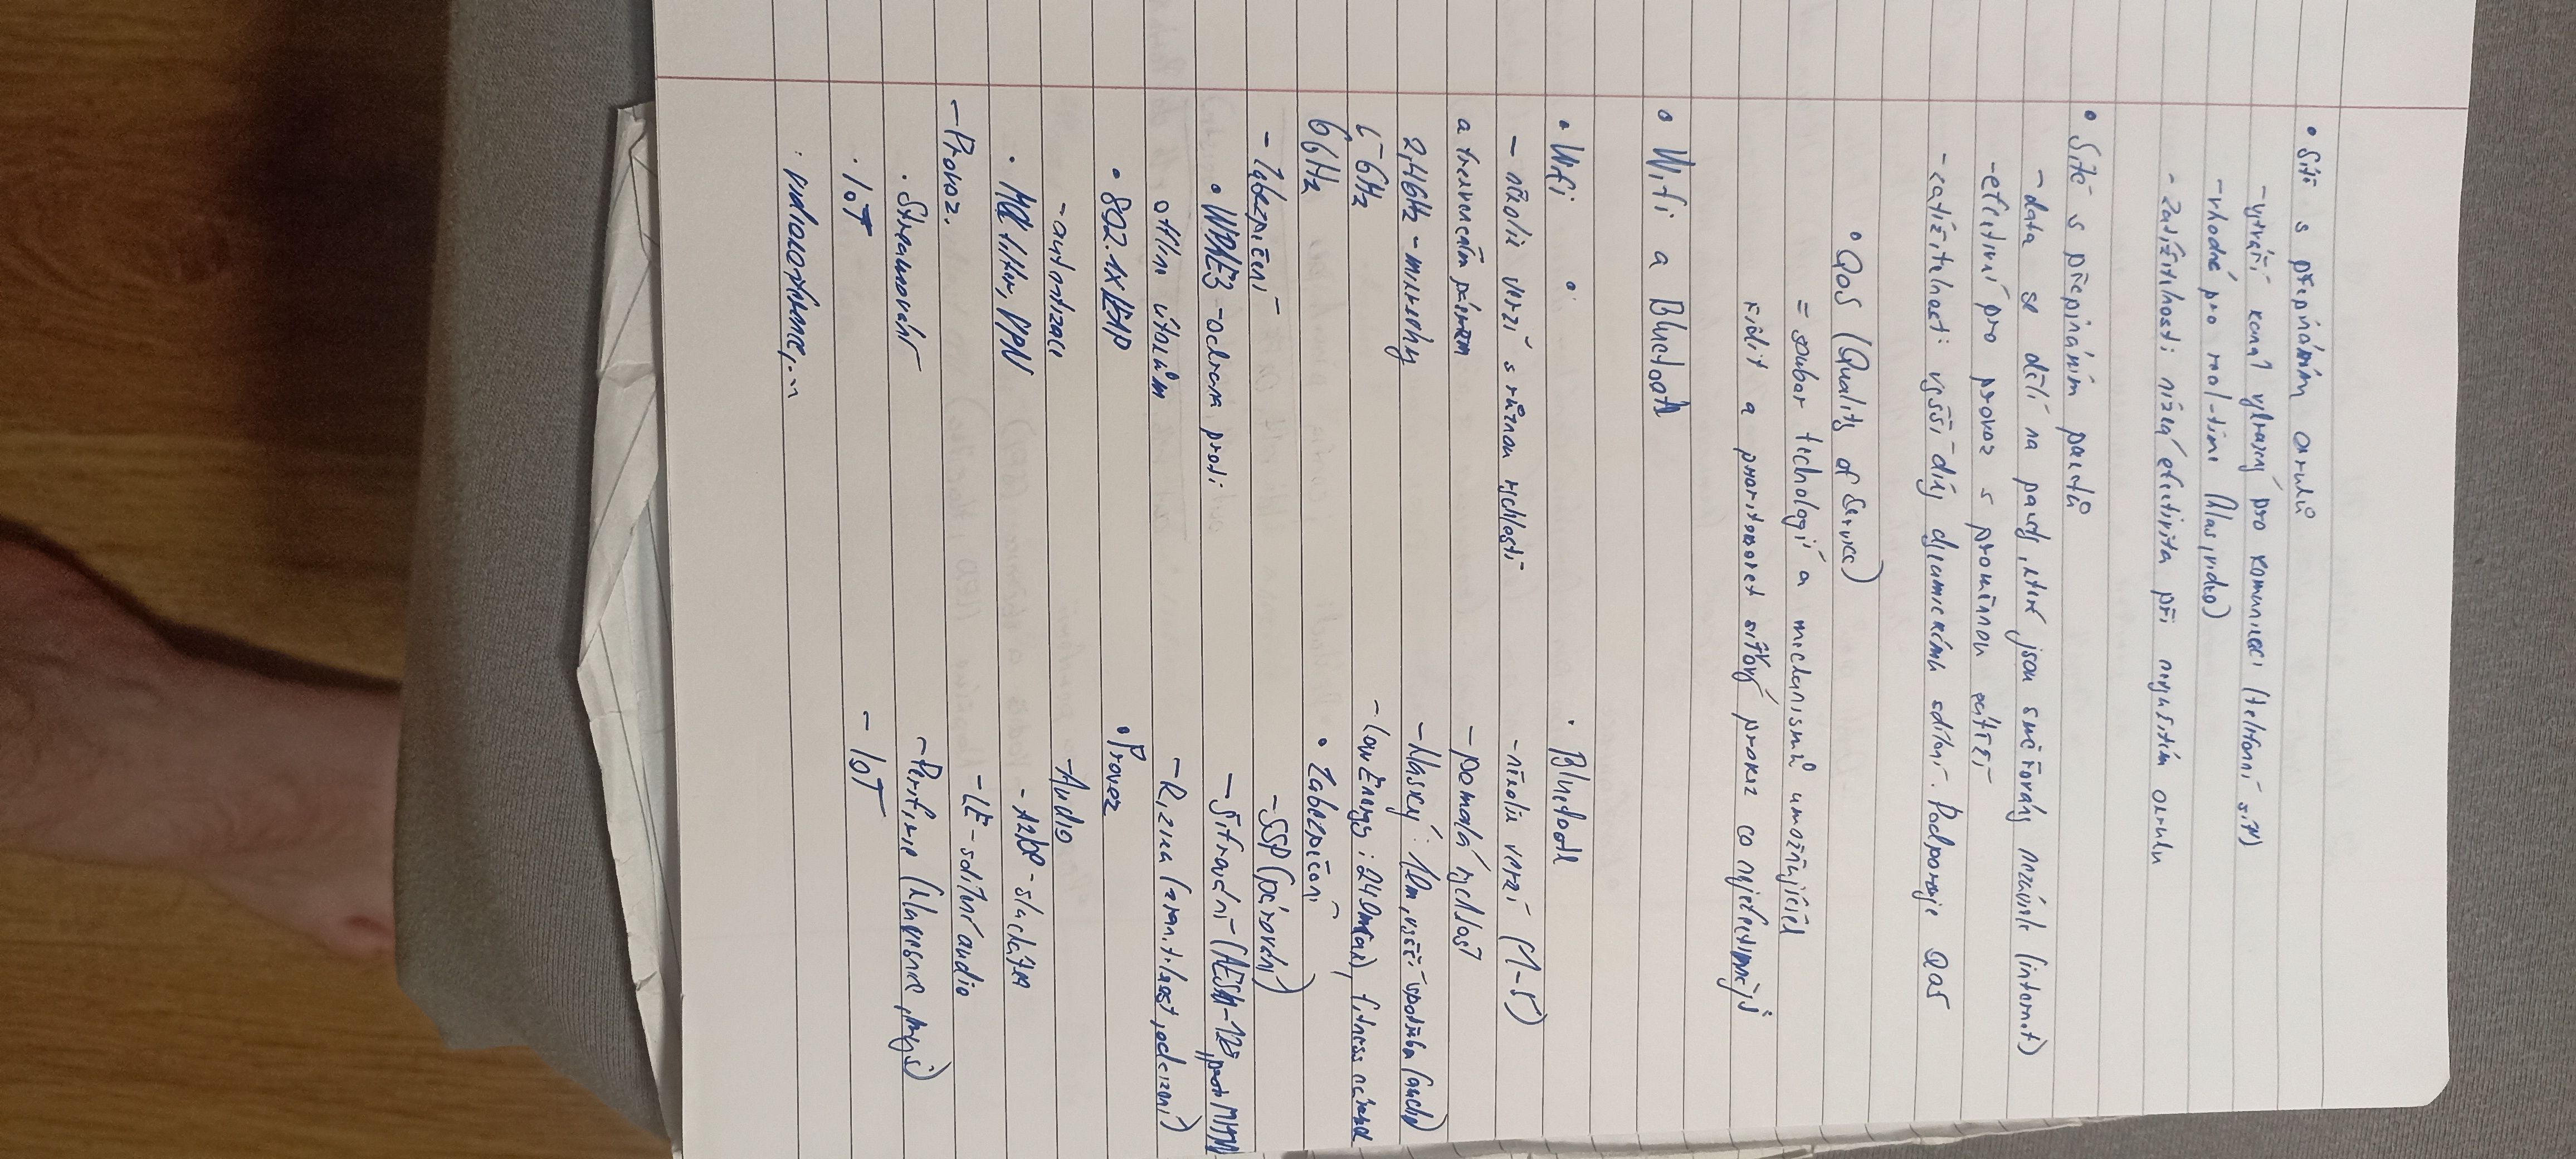 • Sítě s přepínáním okruhů
- vytváří kanál vyhrazený pro komunikaci (telefonní síť)
- vhodné pro real-time (hlas, video)
- zatížitelnost: nízká efektivita při nevyužitém okruhu
• Sítě s přepínáním paketů
- data se dělí na pakety, které jsou směrovány nezávisle (internet)
- efektivní pro provoz s proměnnou zátěží
- zatížitelnost: vyšší díky dynamickému sdílení. Podporuje QoS
• QoS (Quality of Service)
= soubor technologií a mechanismů umožňujících
řídit a prioritizovat síťový provoz co nejefektivněji
• Wifi a Bluetooth
• Wifi
- několik verzí s různou rychlostí
a frekvenčním pásmem
2,4GHz - mikrovlny
5GHz
6GHz
- Zabezpečení
• WPA3 - ochrana proti
offline útokům
• 802.1X/EAP
- autentizace
• MAC filtr, VPN
- Provoz:
• Streamování
• IoT
• videokonference,...
• Bluetooth
- několik verzí (1-5)
- pomalá rychlost
- klasický: 10m, vyšší spotřeba (audio)
- Low Energy: 240m(max), fitness náramek
• Zabezpečení
- SSP (párování)
- Šifrování (AES-128, proti MITM)
- Rizika (zranitelnost, odcizení)
• Provoz
- Audio
- A2DP - sluchátka
- LE - sdílení audio
- Periferie (klávesnice, myš)
- IoT